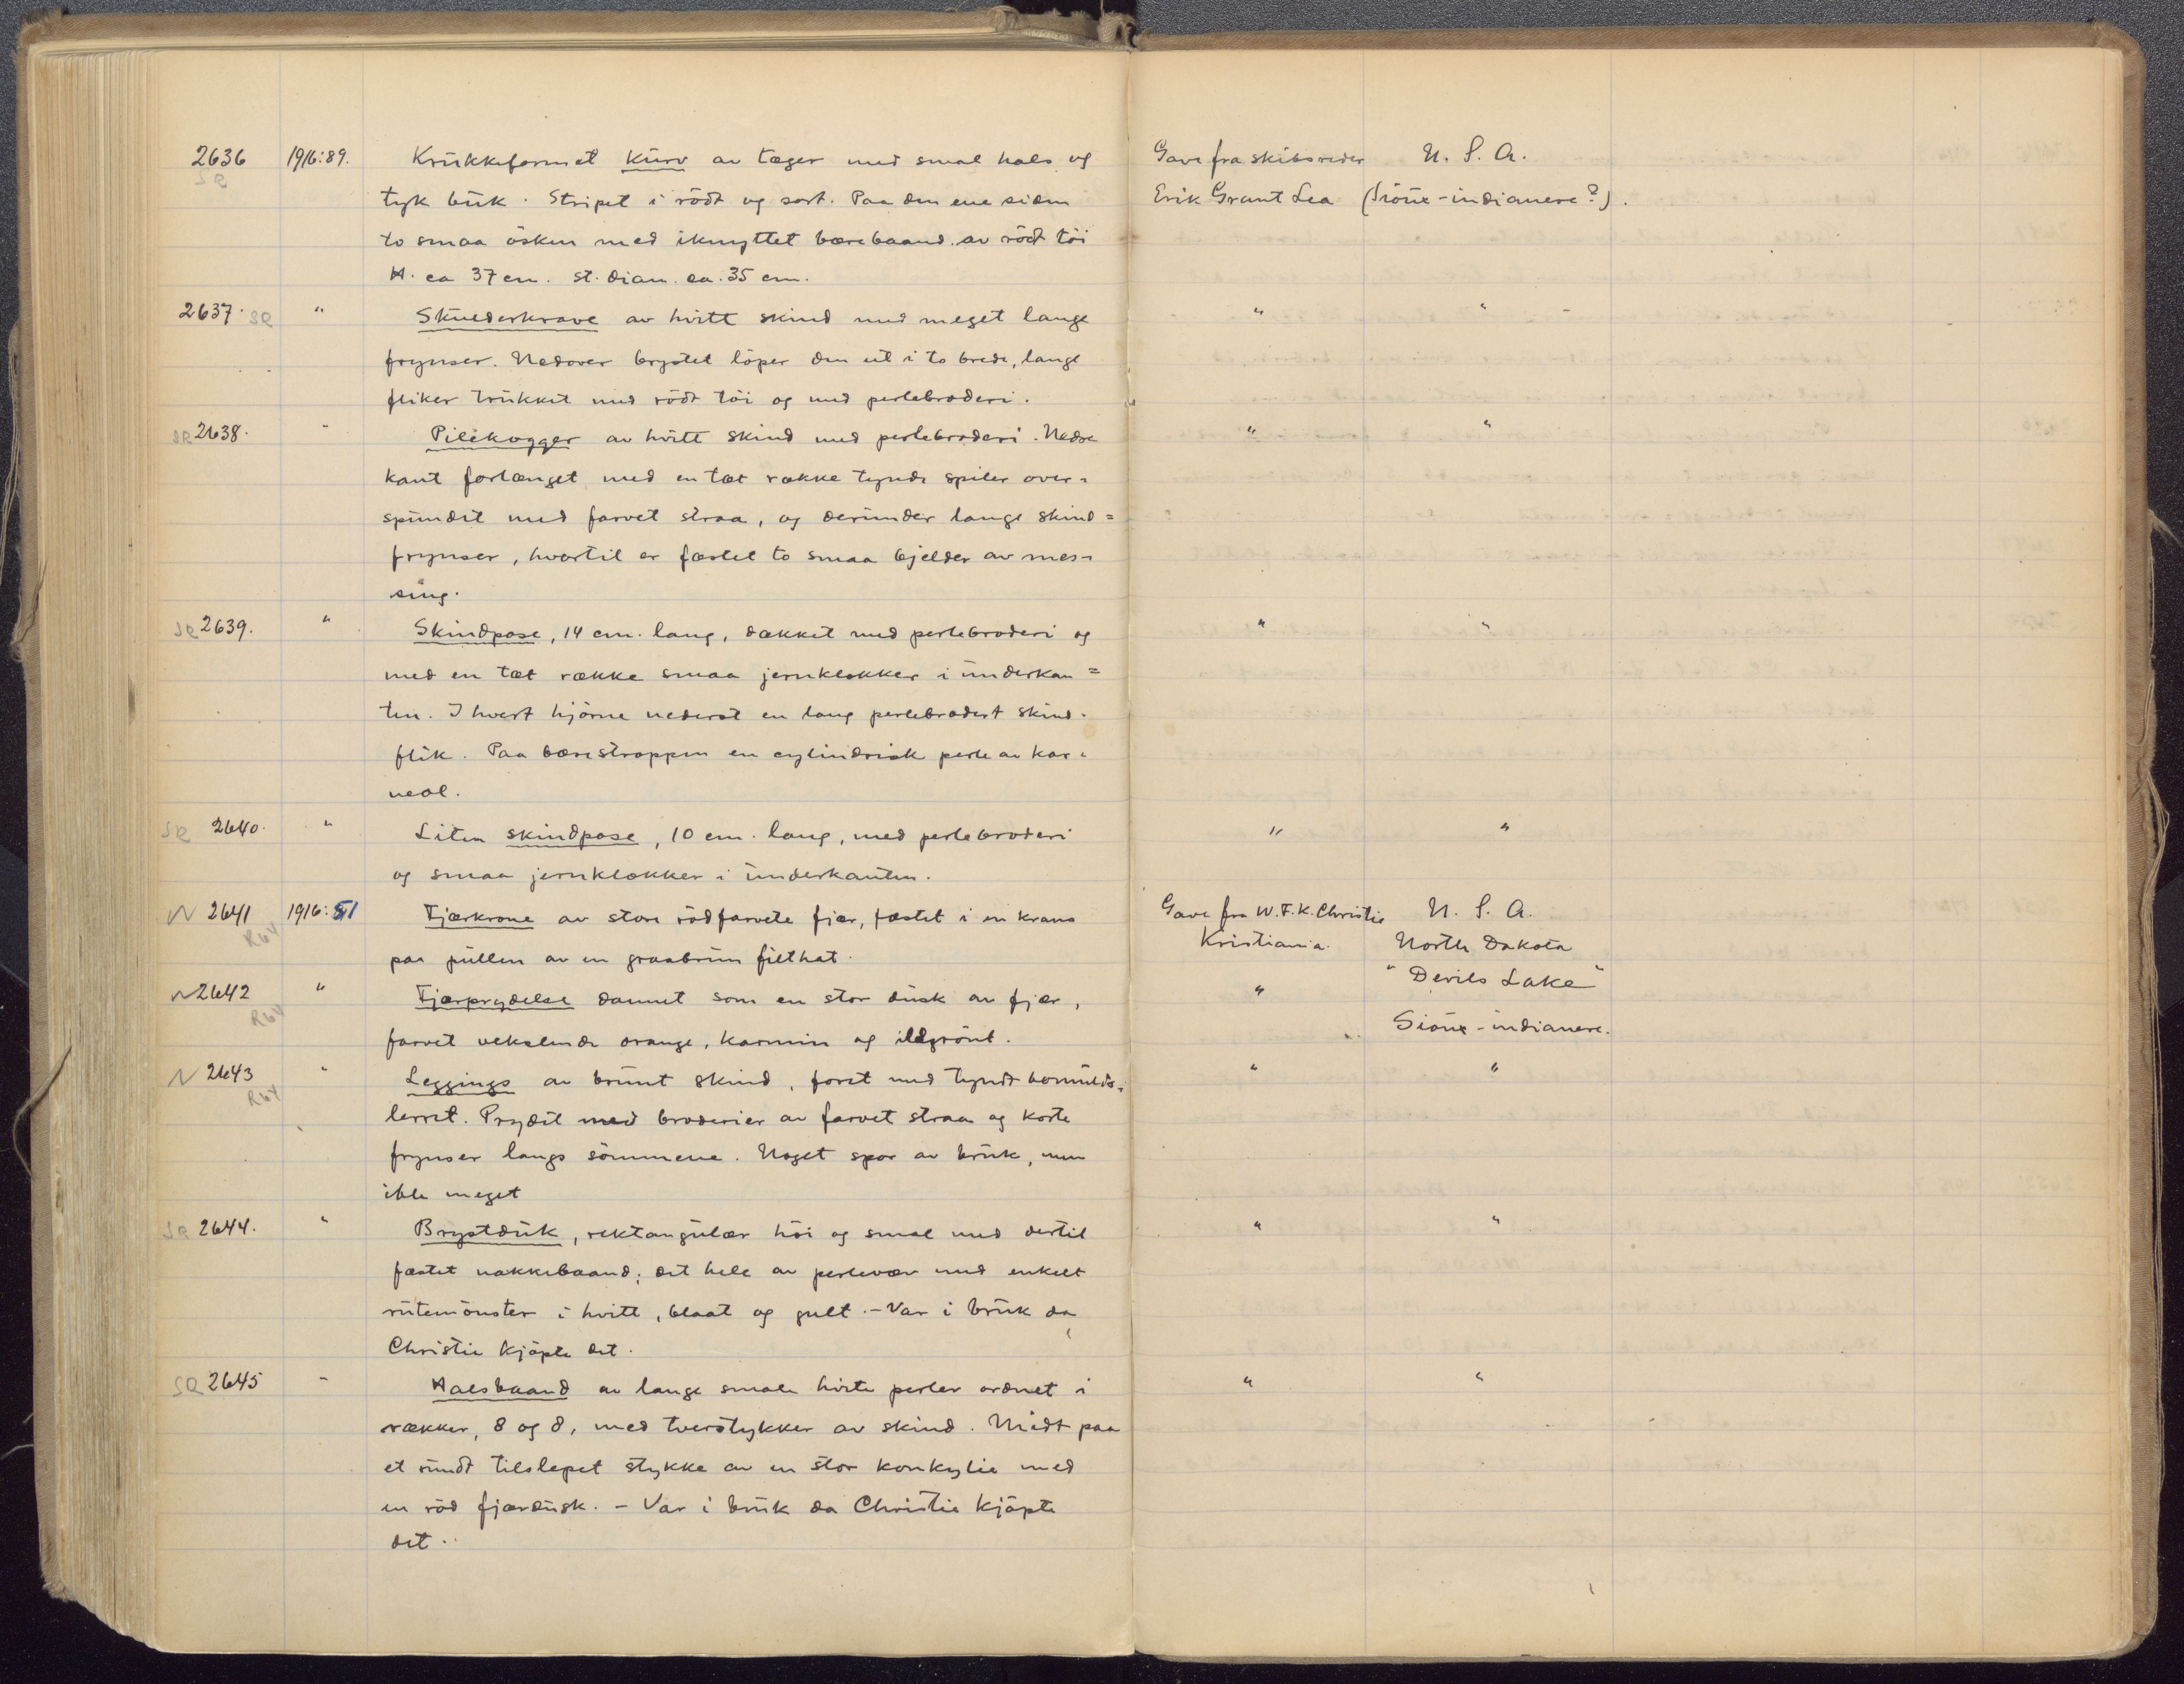 2636 1916:89. Krukkeformet kurv av tæger med smal hals og Gave fra skibsreder U. S. A.
SR tyk buk. Stripet i rödt og sort. Paa den ene siden Erik Grant Lea (Sioux-indianere?).
to smaa ösken med iknyttet bærebaand av rödt töi
H. ca 37 cm. st. diam. ca. 35 cm.
2637. SR " Skulderkrave av hvitt skind med meget lange " "
frynser. Nedover brystet löper den ut i to brede, lange
fliker trukket med rödt töi og med perlebroderi.
SR 2638. " Pilekogger av hvitt skind med perlebroderi. Nedre " "
kant forlænget med en tæt række tynde spiler over=
spundet med farvet straa, og derunder lange skind=
frynser, hvortil er fæstet to smaa bjelder av mes=
sing.
SR 2639. " Skindpose, 14 cm. lang, dækket med perlebroderi og " "
med en tæt række smaa jernklokker i underkan=
ten. I hvert hjörne nederst en lang perlebrodert skind=
flik. Paa bærestroppen en cylindrisk perle av kar=
neol.
SR 2640. " Liten skindpose, 10 cm. lang, med perlebroderi " "
og smaa jernklokker i underkanten.
N 2641 1916:51 Fjærkrone av store rödfarvete fjær, fæstet i en krans Gave fra W.F.K. Christie U. S. A.
R64 paa pullen av en graabrun filthat. Kristiania. North Dakota
"Devils Lake"
N 2642 " Fjærprydelse dannet som en stor dusk av fjær, "
R64 farvet vekslende orange, karmin og illgrönt. " Sioux-indianere.
N 2643 " Leggings av brunt skind, foret med tyndt bomulds= " "
R64 lerret. Prydet med broderier av farvet straa og korte
frynser langs sömmene. Noget spor av bruk, men
ikke meget
SR 2644. " Brystduk, rektangulær höi og smal med dertil " "
fæstet nakkebaand; det hele av perlevæv med enkelt
rutemönster i hvitt, blaat og gult. – Var i bruk da
Christie kjöpte det.
SR 2645 – Halsbaand av lange smale hvite perler ordnet i " "
rækker, 8 og 8, med tverstykker av skind. Midt paa
et rundt tilslepet stykke av en stor konkylie med
en röd fjærdusk. – Var i bruk da Christie kjöpte
det.